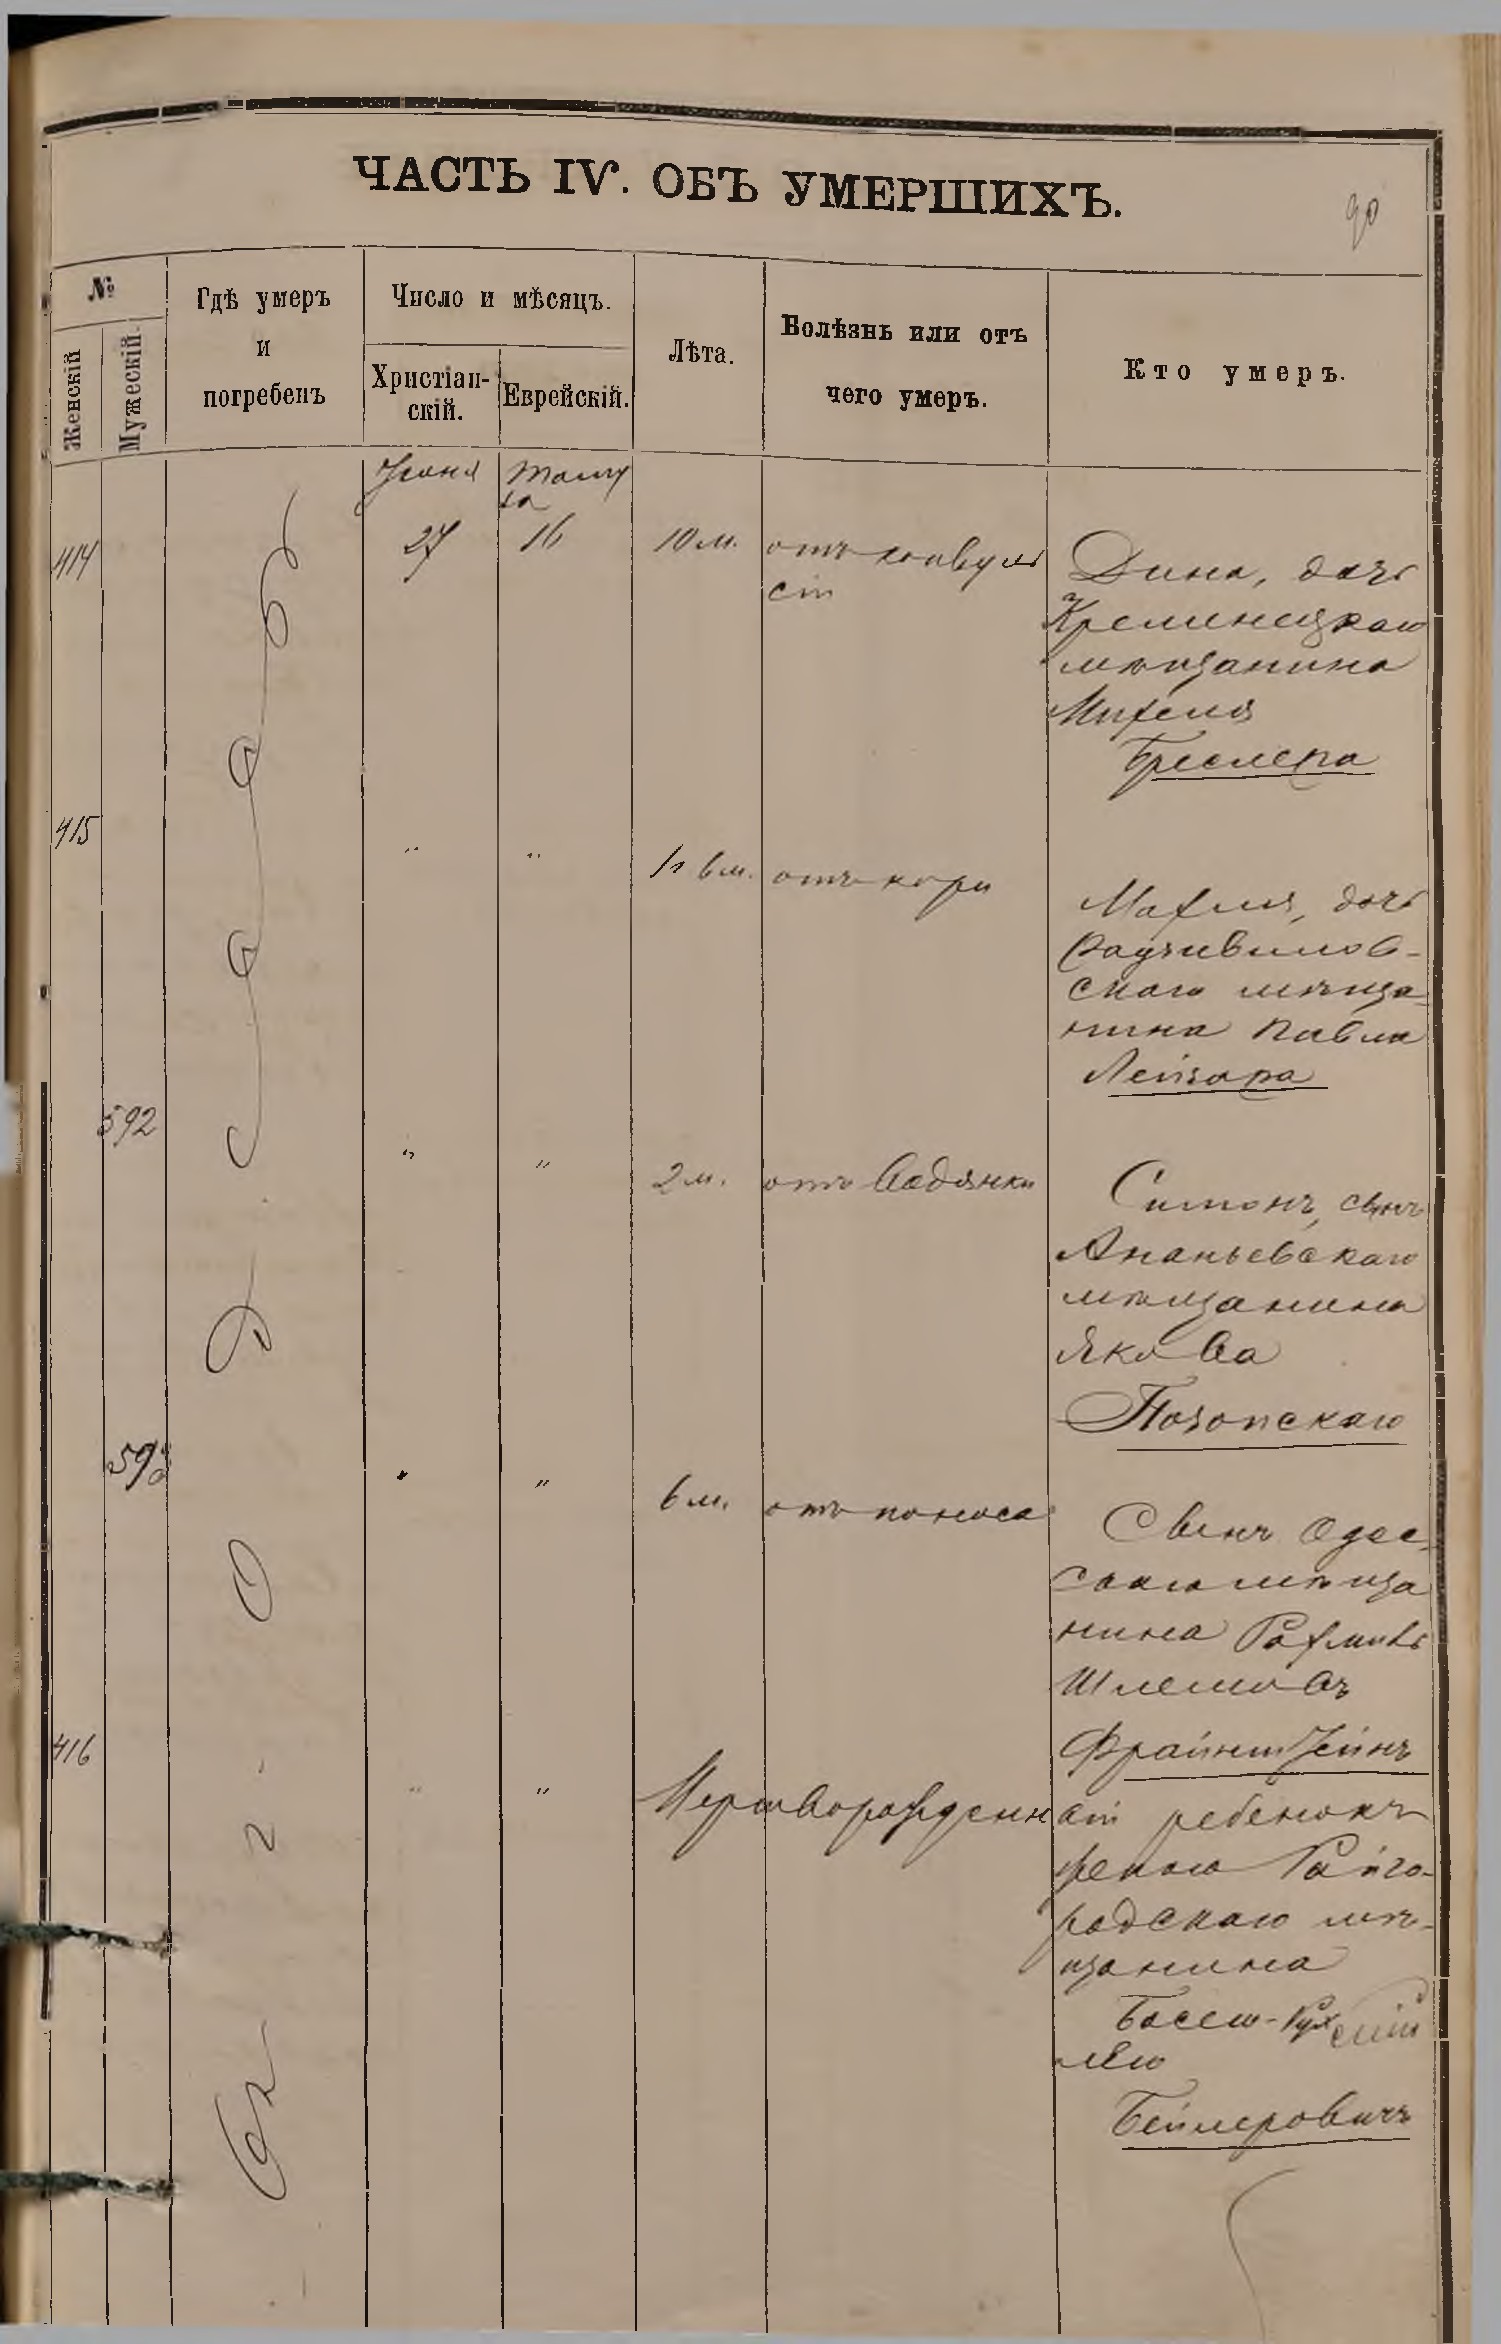 ЧАСТЬ IV. ОБЪ УМЕРШИХЪ.
90
№
Женскій
Мужескій.
Гдѣ умеръ
и
погребенъ
Число и мѣсяцъ.
Христіан-
скій.
Еврейскій.
Лѣта.
Болѣзнь или отъ
чего умеръ.
Кто умеръ.
Іюня
Таму
за
414
27
16
10 м.
отъ конвуль
сій
Дина, дочь
Кременецкаго
мѣщанина
Михеля
Бреслера
415
"
"
1 г 6 м.
отъ кори
Махля, дочь
Радзивилов-
скаго мѣща
нина Павла
Лейзора
592
"
"
2 м.
отъ водянки
Симонъ, сынъ
Ананьевскаго
мѣщанина
Якова
593
"
"
6 м.
отъ поноса
Сынъ Одес-
скаго мѣща
нина Рахмиль
Шлемовъ
Файнштейнъ
416
"
"
Мертворожденн
ый ребенокъ
женскаго Райго-
родскаго мѣ-
щанина
Бейлеровичъ